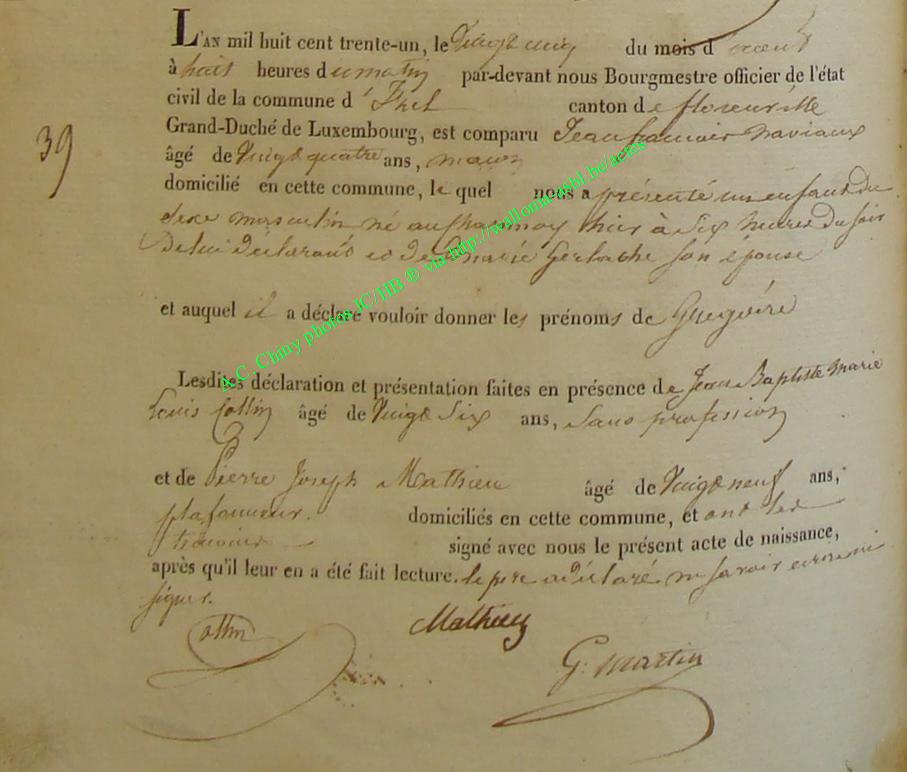 L'AN mil huit cent trente-un, le Vingt cinq du mois d'aout
à huit heures du matin par-devant nous Bourgmestre officier de l'état
civil de la commune d'Izel canton de florenville
39
Grand-Duché de Luxembourg, est comparu Jean françois naviaux
âgé de Vingt quatre ans,
domicilié en cette commune, le quel nous a présenté un enfant du
sexe masculin né hier à Six heures du soir
De lui Déclarant et De marie Gerlache son épouse
et auquel il a déclaré vouloir donner les prénoms de Grégoire
A.C. Chiny photos JC/HB ® via http://wallonica.be/actes
Lesdites déclaration et présentation faites en présence de Jean Baptiste marie
Louis Collin âgé de Vingt Six ans, sans profession
et de Pierre Joseph Mathieu âgé de Vingt neuf ans,
plafonneur. domiciliés en cette commune, et ont les
témoins signé avec nous le présent acte de naissance,
après qu'il leur en a été fait lecture. le pere a déclaré ne savoir ecrire ni
signer.
Collin Mathieu
G. Martin